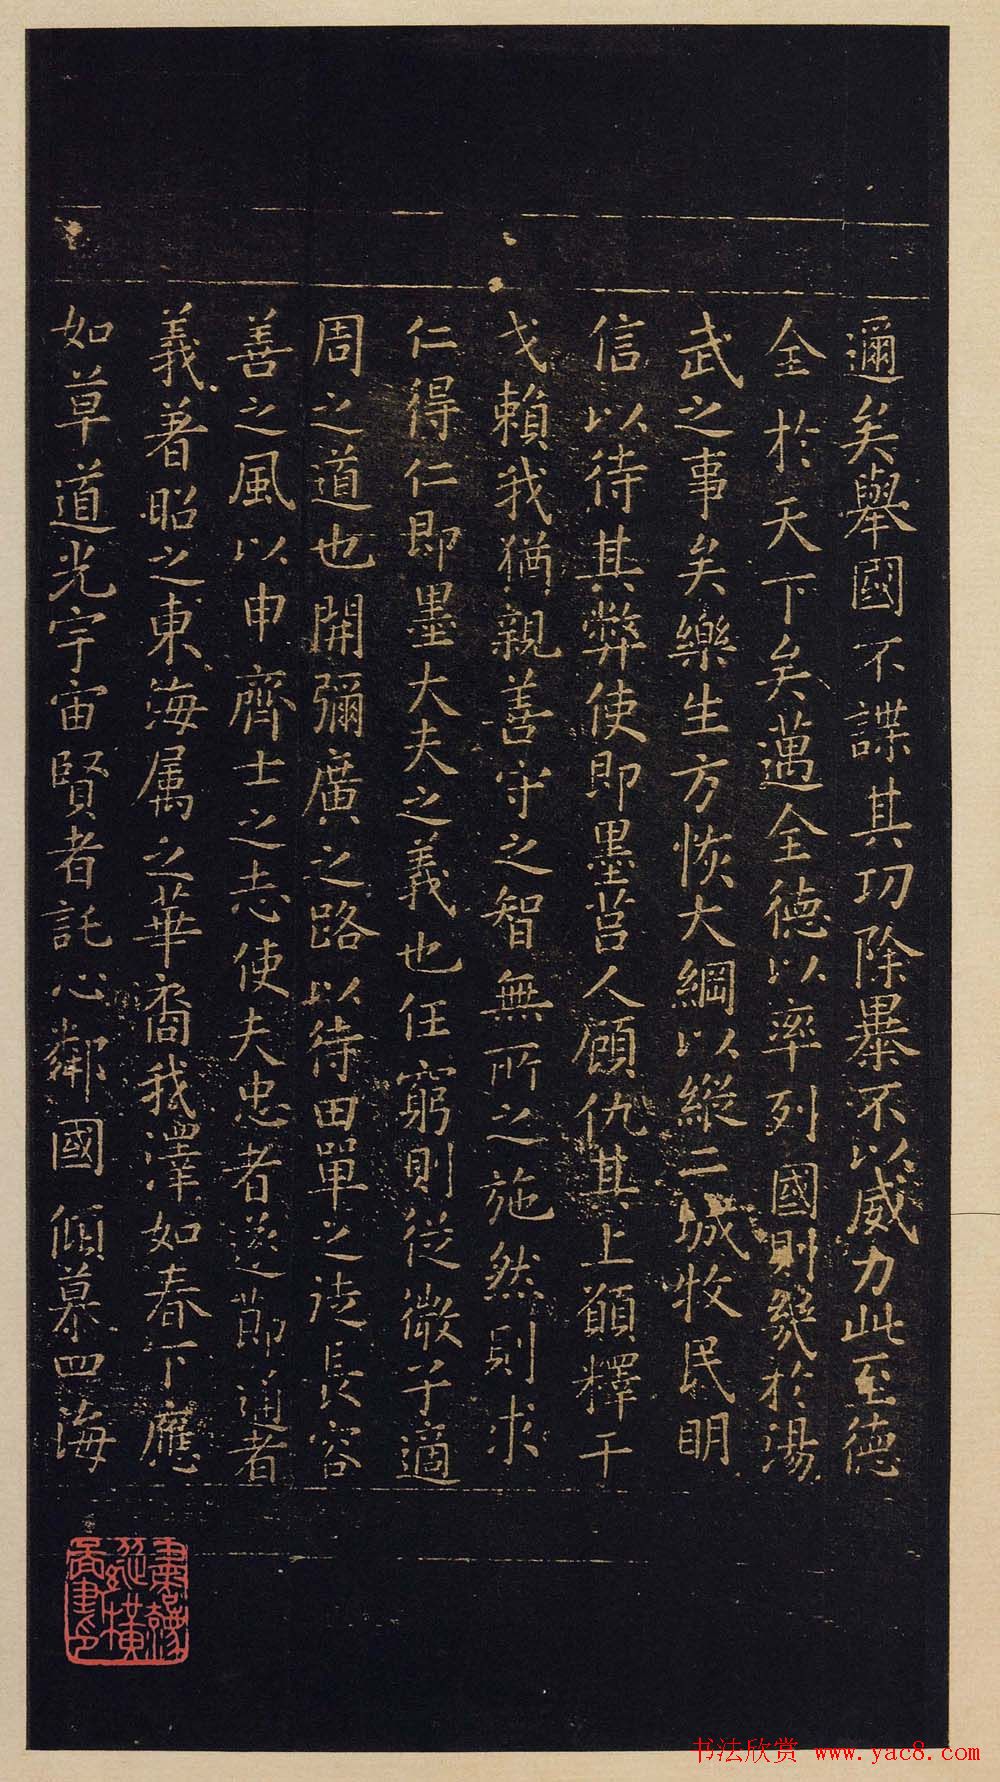 邇矣舉國不謀其功除暴不以威力此至德
全於天下矣邁全德以率列國則幾於湯
武之事矣樂生方恢大綱以縱二城牧民明
信以待其弊使即墨莒人顧仇其上願釋干
戈賴我猶親善守之智無所之施然則求
仁得仁即墨大夫之義也任窮則從微子適
周之道也開彌廣之路以待田單之徒長容
善之風以申齊士之志使夫忠者遂節通者
義著昭之東海屬之華裔我澤如春下應
如草道光宇宙賢者託心鄰國傾慕四海
书法欣赏 www.yac8.com